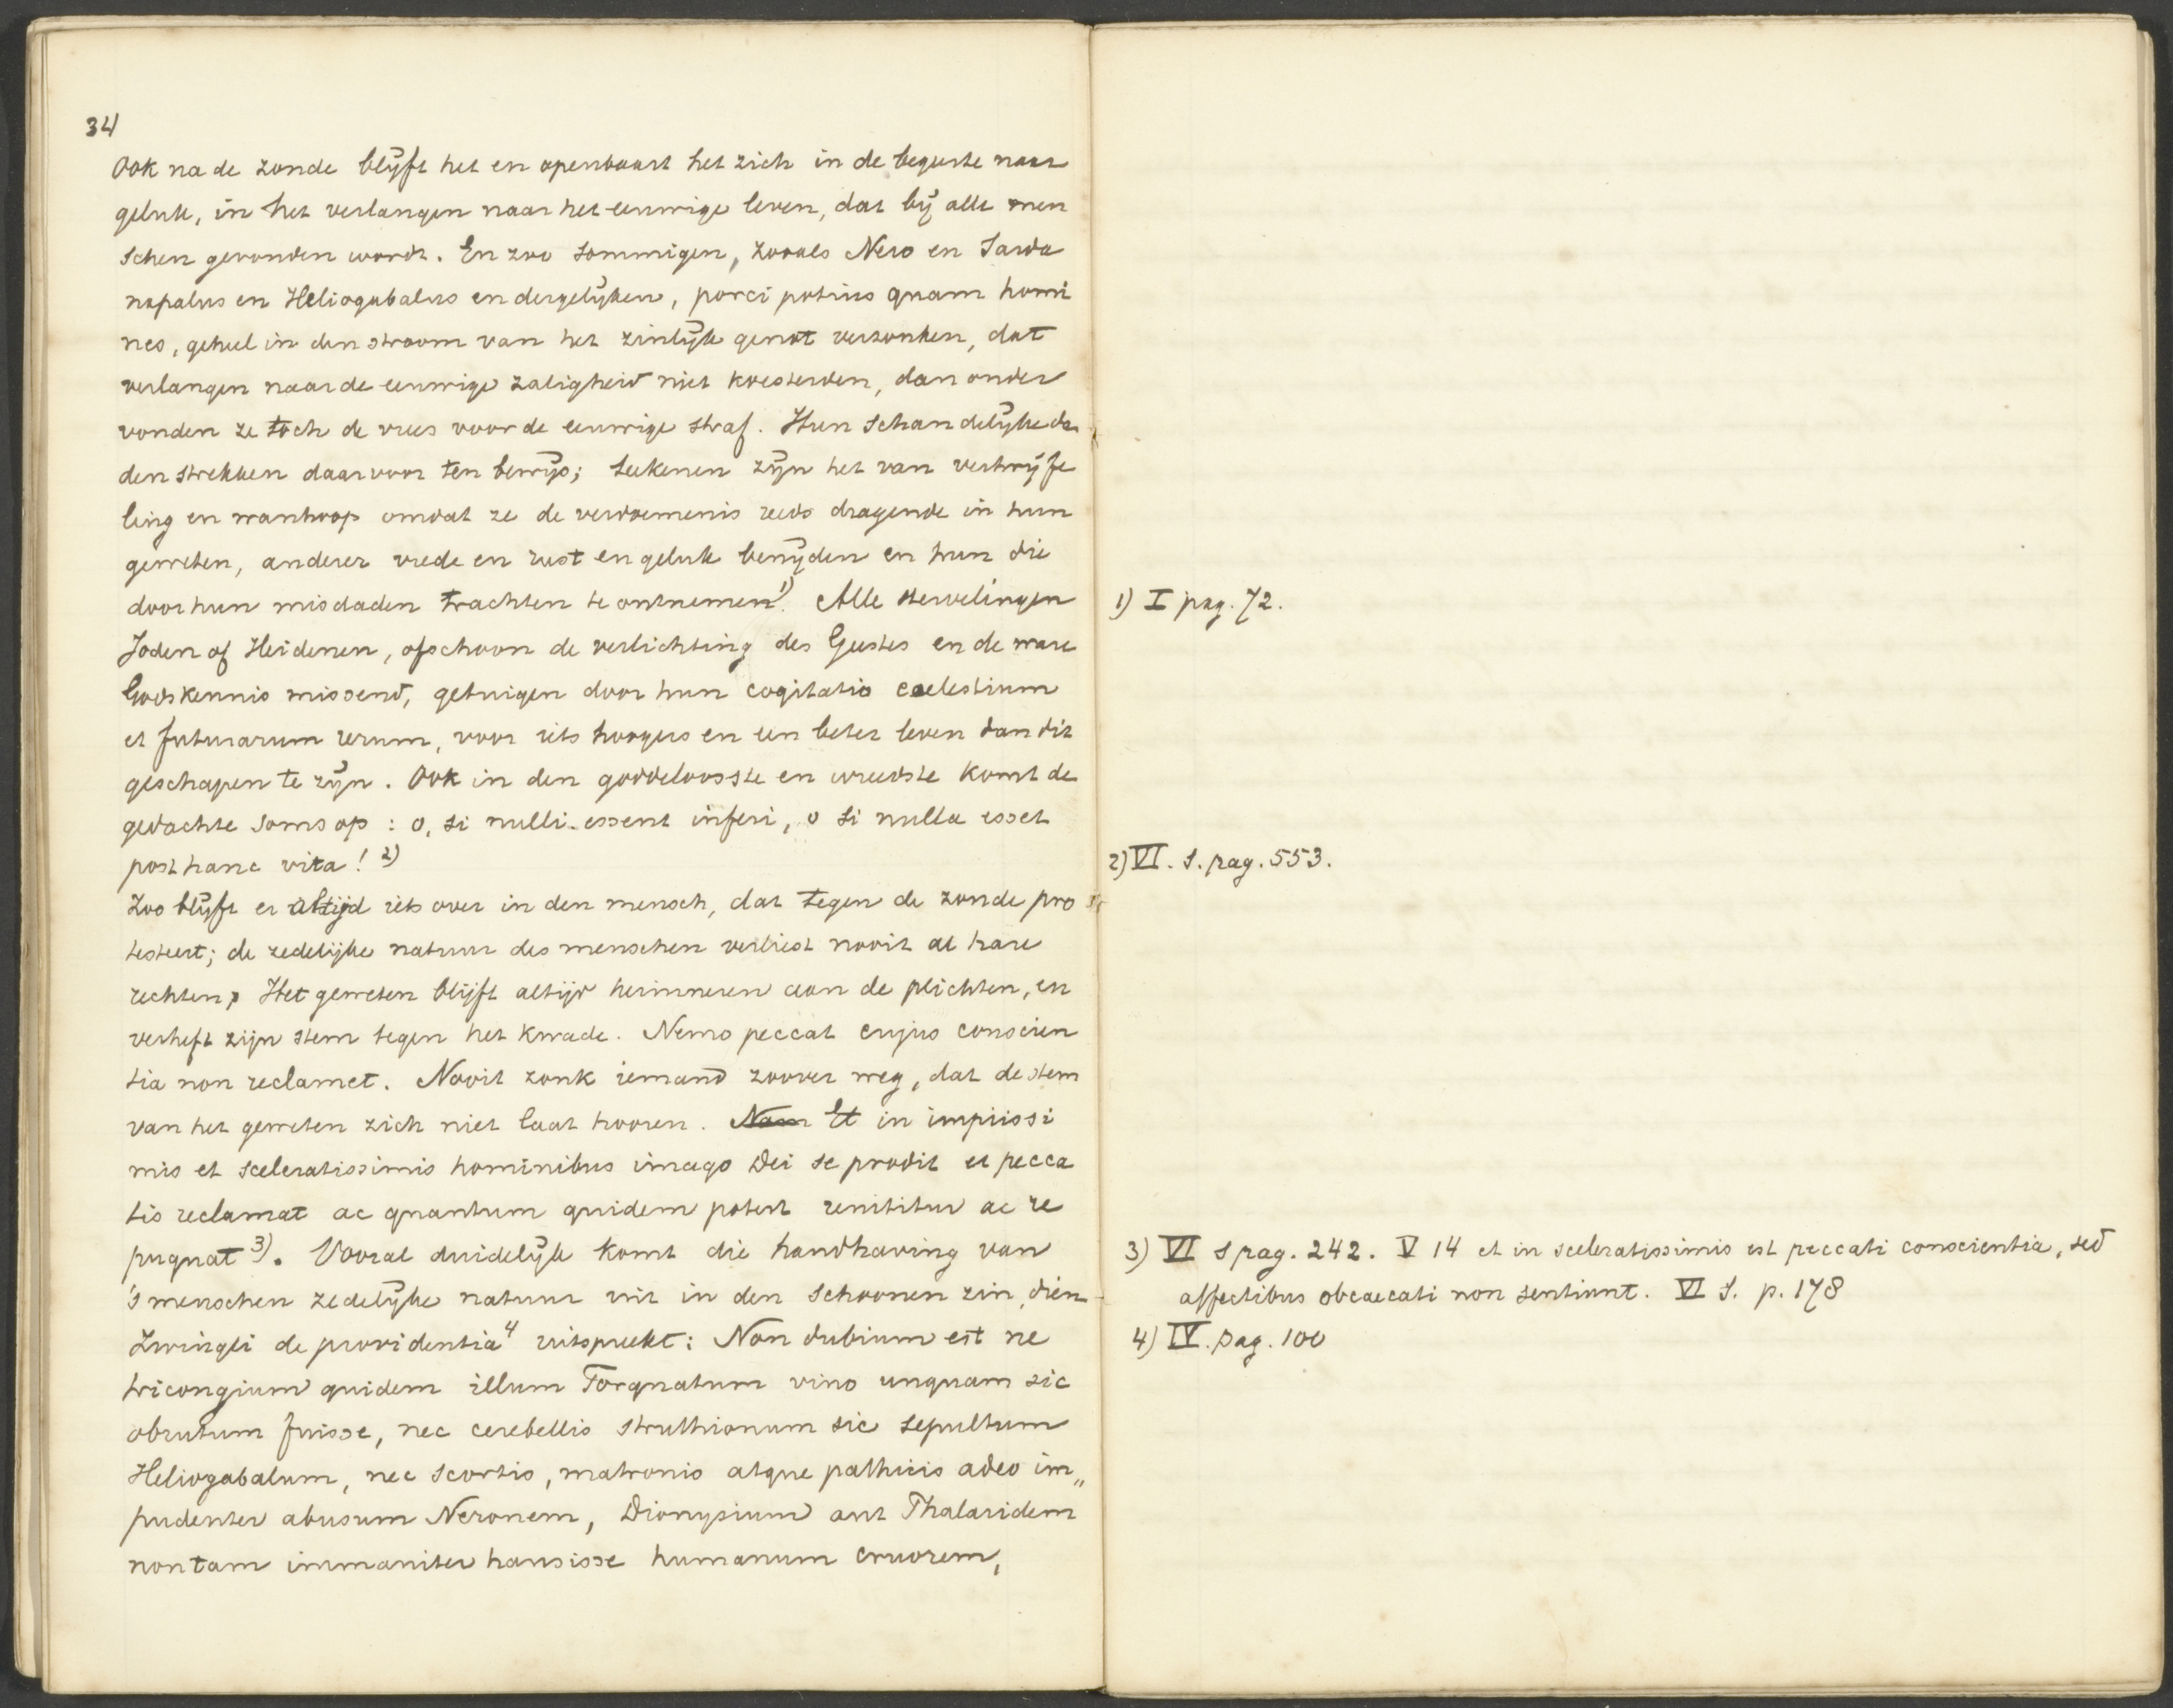 34
Ook na de zonde blijft het en openbaart het zich in de begeerte naar
geluk, in het verlangen naar het eeuwige leven, dat bij alle men
schen gevonden wordt. En zoo sommigen, zooals Nero en Sarda
napalus en Heliogabalus en dergelijken, porci potius quam homi
nes, geheel in den stroom van het zinlijk genot verzonken, dat
verlangen naar de eeuwige zaligheid niet koesterden, dan onder
vonden ze toch de vrees voor de eeuwige straf. Hun schandelijke da
den strekken daarvoor ten bewijs; teekenen zijn het van vertwijfe
ling en wanhoop omdat ze de verdoemenis reeds dragende in hun
geweten, anderer vrede en rust en geluk benijden en hun die
door hun misdaden trachten te ontnemen 1). Alle stervelingen
Joden of Heidenen, ofschoon de verlichting des Geestes en de ware
Godskennis missend, getuigen door hun cogitatio coelestium
et futurarum rerum, voor iets hoogers en een beter leven dan dit
geschapen te zijn. Ook in den goddelooste en wreedste komt de
gedachte soms op: o, si nulli essent inferi, o si nulla esset
post hanc vita! 2)
Zoo blijft er altijd iets over in den mensch, dat tegen de zonde pro
testeert; de zedelijke natuur des menschen verliest nooit al hare
rechten, Het geweten blijft altijd herinneren aan de plichten, en
verheft zijn stem tegen het kwade. Nemo peccat cujus conscien
tia non reclamet. Nooit zonk iemand zoover weg, dat de stem
van het geweten zich niet laat hooren. Nam Et in impiissi
mis et sceleratissimis hominibus imago Dei se prodit et pecca
tis reclamat ac quantum quidem potest renititur ac re
pugnat 3). Vooral duidelijk komt die handhaving van
's menschen zedelijke natuur uit in den schoonen zin, dien
Zwingli de providentia 4 uitspreekt: Non dubium est ne
tricongium quidem illum Torquatum vino unquam sic
obrutum fuisse, nec cerebellis struthionum sic sepultum
Heliogabalum, nec scortis, matronis atque pathicis adeo im„
pudenter abusum Neronem, Dionysium aut Phalaridem
non tam immaniter hausisse humanum cruorem,
1) I pag. 72.
2) VI. S. pag. 553.
3) VI S pag. 242. V 14 et in sceleratissimis est peccati conscientia, sed
affectibus obcaecati non sentiunt. VI S. p. 178
4) IV. pag. 100